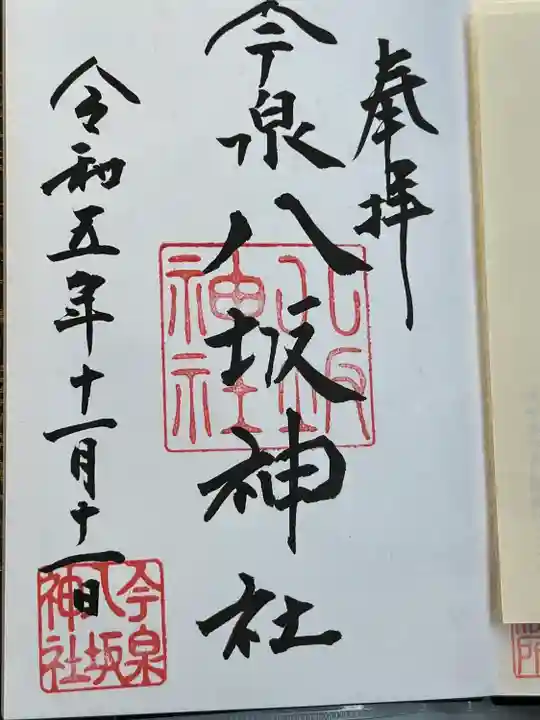 奉拝
今泉八坂神社
八坂
神社
令和五年十一月十一日
今泉
八坂
神社